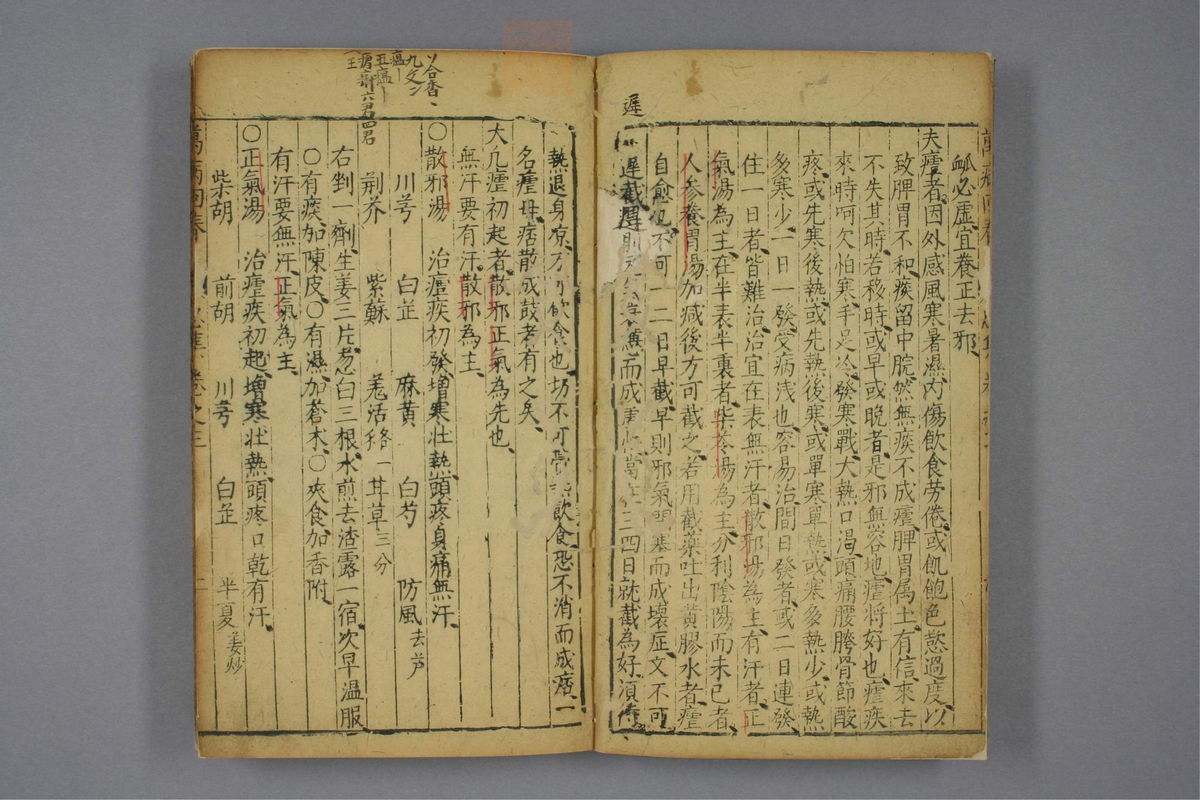 衂必虛宜養正去邪
夫瘧者因外感風寒暑濕內傷飲食勞倦或飢飽色慾過度以
致脾胃不和痰留中脘然無痰不成瘧脾胃属土有信來去
不失其時若移時或早或晚者是邪無容地瘧將好也瘧疾
來時呵欠怕寒手足冷發寒戰大熱口渴頭痛腰胯骨節酸
疼或先寒後熱或先熱後寒或單寒單熱或寒多熱少或熱
多寒少一日一發受病浅也容易治間日發者或二日連發
住一日者皆難治治宜在表無汗者散邪湯為主有汗者正
氣湯為主在半表半裏者柴苓湯為主分利陰陽而未已者
人参養胃湯加减後方可截之若用截藥吐出黄膠水者瘧
自愈也不可一二日早截早則邪氣閉塞而成壞症又不可
遲
遲截遲則 而成 當在三四日就截為好須待
熱退身凉方可飲食也切不可 飲食恐不消而成痞一
名瘧母痞散成鼓者有之矣
大凢瘧初起者散邪正氣為先也
無汗要有汗散邪為主
○散邪湯 治瘧疾初發增寒壯熱頭疼身痛無汗
川芎 白芷 麻黄 白芍 防風去芦
荆芥 紫蘇 羗活各一 甘草三分
右剉一劑生姜三片葱白三根水煎去渣露一宿次早温服
○有痰加陳皮○有濕加蒼朮○夾食加香附
有汗要無汗正氣為主
○正氣湯 治瘧疾初起增寒壯熱頭疼口乾有汗
柴胡 前胡 川芎 白芷 半夏姜炒
萬病回春 卷之三 二